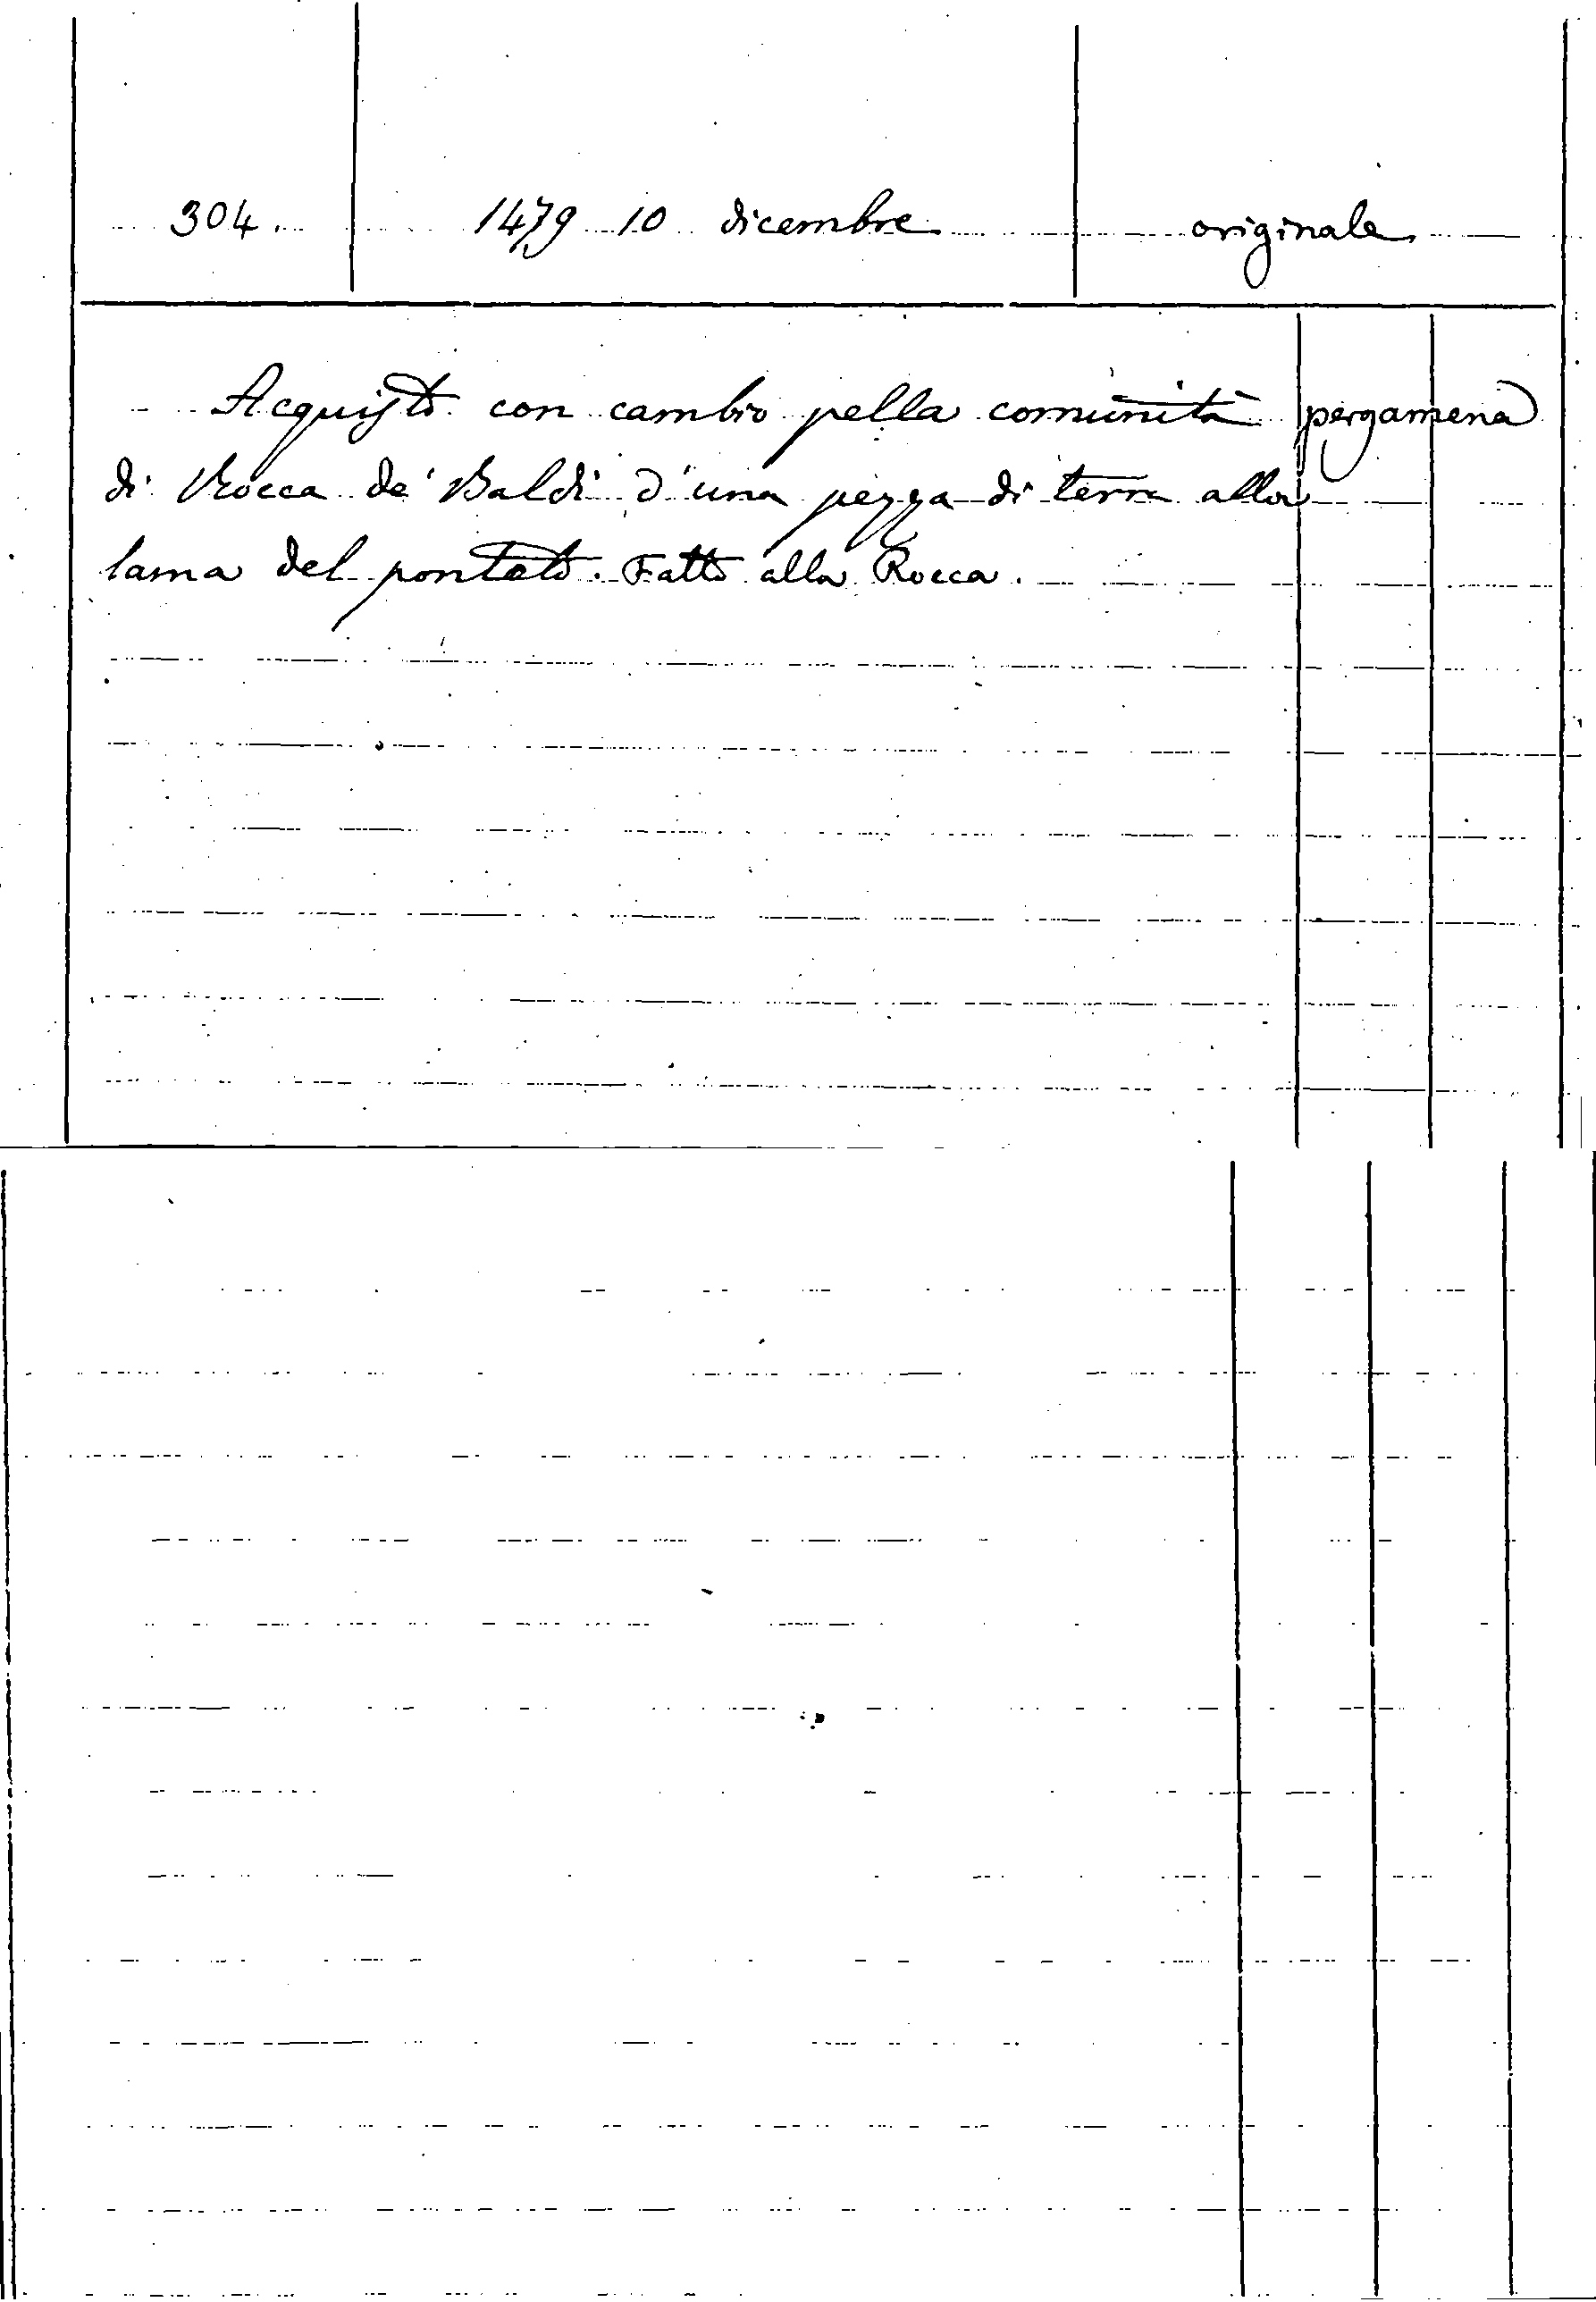 304. 1479 10 dicembre originale
Acquisto con cambio pella comunità pergamena
di Rocca de' Baldi d'una pezza di terra alla
lama del ponteto. Fatto alla Rocca.